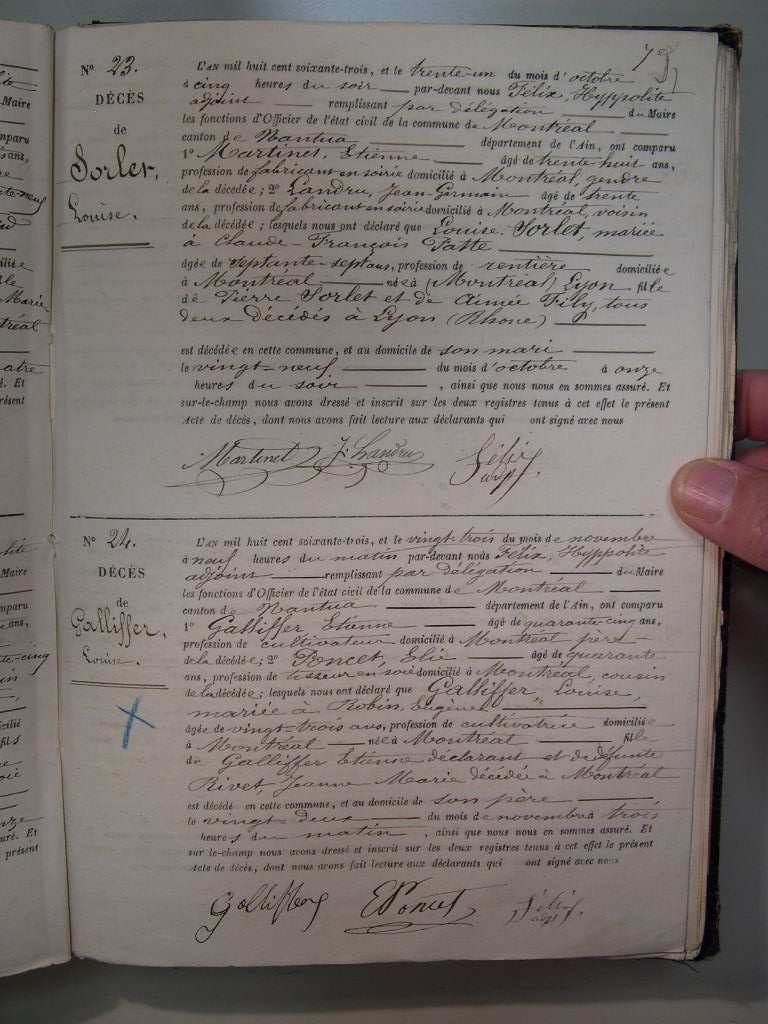 Nº 23.
DÉCÈS
de
Sorlet,
Louise.
L'AN mil huit cent soixante-trois, et le trente-un du mois d'octobre
à cinq heures du soir par-devant nous Félix, Hyppolite
adjoint remplissant par délégation du Maire
les fonctions d'Officier de l'état civil de la commune de Montréal
canton de Nantua département de l'Ain, ont comparu
1º Martinet, Etienne âgé de trente-huit ans,
profession de fabricant en soirie domicilié à Montréal, gendre
de la décédée; 2º Landru, Jean-Germain âgé de trente
ans, profession de fabricant en soirie domicilié à Montréal, voisin
de la décédée; lesquels nous ont déclaré que Louise Sorlet, mariée
à Claude-François Patte
âgée de septante-sept ans, profession de rentière domiciliée
à Montréal née à (Montréal) Lyon fille
de Pierre Sorlet et de Aimée Fily, tous
deux Décédés à Lyon (Rhone)
est décédée en cette commune, et au domicile de son mari
le vingt-neuf du mois d'octobre à onze
heures du soir, ainsi que nous nous en sommes assuré. Et
sur-le-champ nous avons dressé et inscrit sur les deux registres tenus à cet effet le présent
Acte de décès, dont nous avons fait lecture aux déclarants qui ont signé avec nous
Martinet J. Landru Félix adj.
Nº 24.
DÉCÈS
de
Galliffer,
Louise.
L'AN mil huit cent soixante-trois, et le vingt-trois du mois de novembre
à neuf heures du matin par-devant nous Félix, Hyppolite
adjoint remplissant par délégation du Maire
les fonctions d'Officier de l'état civil de la commune de Montréal
canton de Nantua département de l'Ain, ont comparu
1º Galliffer Etienne âgé de quarante-cinq ans,
profession de cultivateur domicilié à Montréal père
de la décédée; 2º Poncet, Elie âgé de quarante
ans, profession de tisseur en soie domicilié à Montréal, cousin
de la décédée; lesquels nous ont déclaré que Galliffer, Louise,
mariée à Robin, Eugène
âgée de vingt-trois ans, profession de cultivatrice domiciliée
à Montréal née à Montréal fille
de Galliffer Etienne déclarant et de défunte
Rivet, Jeanne Marie décédée à Montréal
est décédé en cette commune, et au domicile de son père
le vingt deux du mois de novembre à trois
heures du matin, ainsi que nous nous en sommes assuré. Et
sur le-champ nous avons dressé et inscrit sur les deux registres tenus à cet effet le présent
Acte de décès, dont nous avons fait lecture aux déclarants qui ont signé avec nous
Galliffer E Poncet Félix adj.